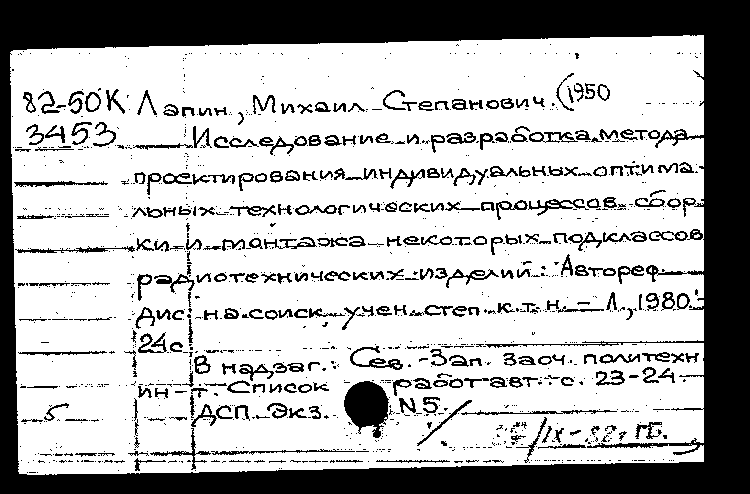 82-50К Лапин, Михаил Степанович (1950
3453 Исследование и разработка метода
проектирования индивидуальных оптима-
льных технологических процессов сбор-
ки и монтажа некоторых подклассов
радиотехнических изделий: Автореф.
дис. на соиск. учен. степ. к.т.н. - Л., 1980.-
24с
В надзаг.: Сев.-Зап. заоч. политехн.
ин-т. Список работ авт.: с. 23-24.
5 ДСП. Экз. N5
/IX-82г ГБ.